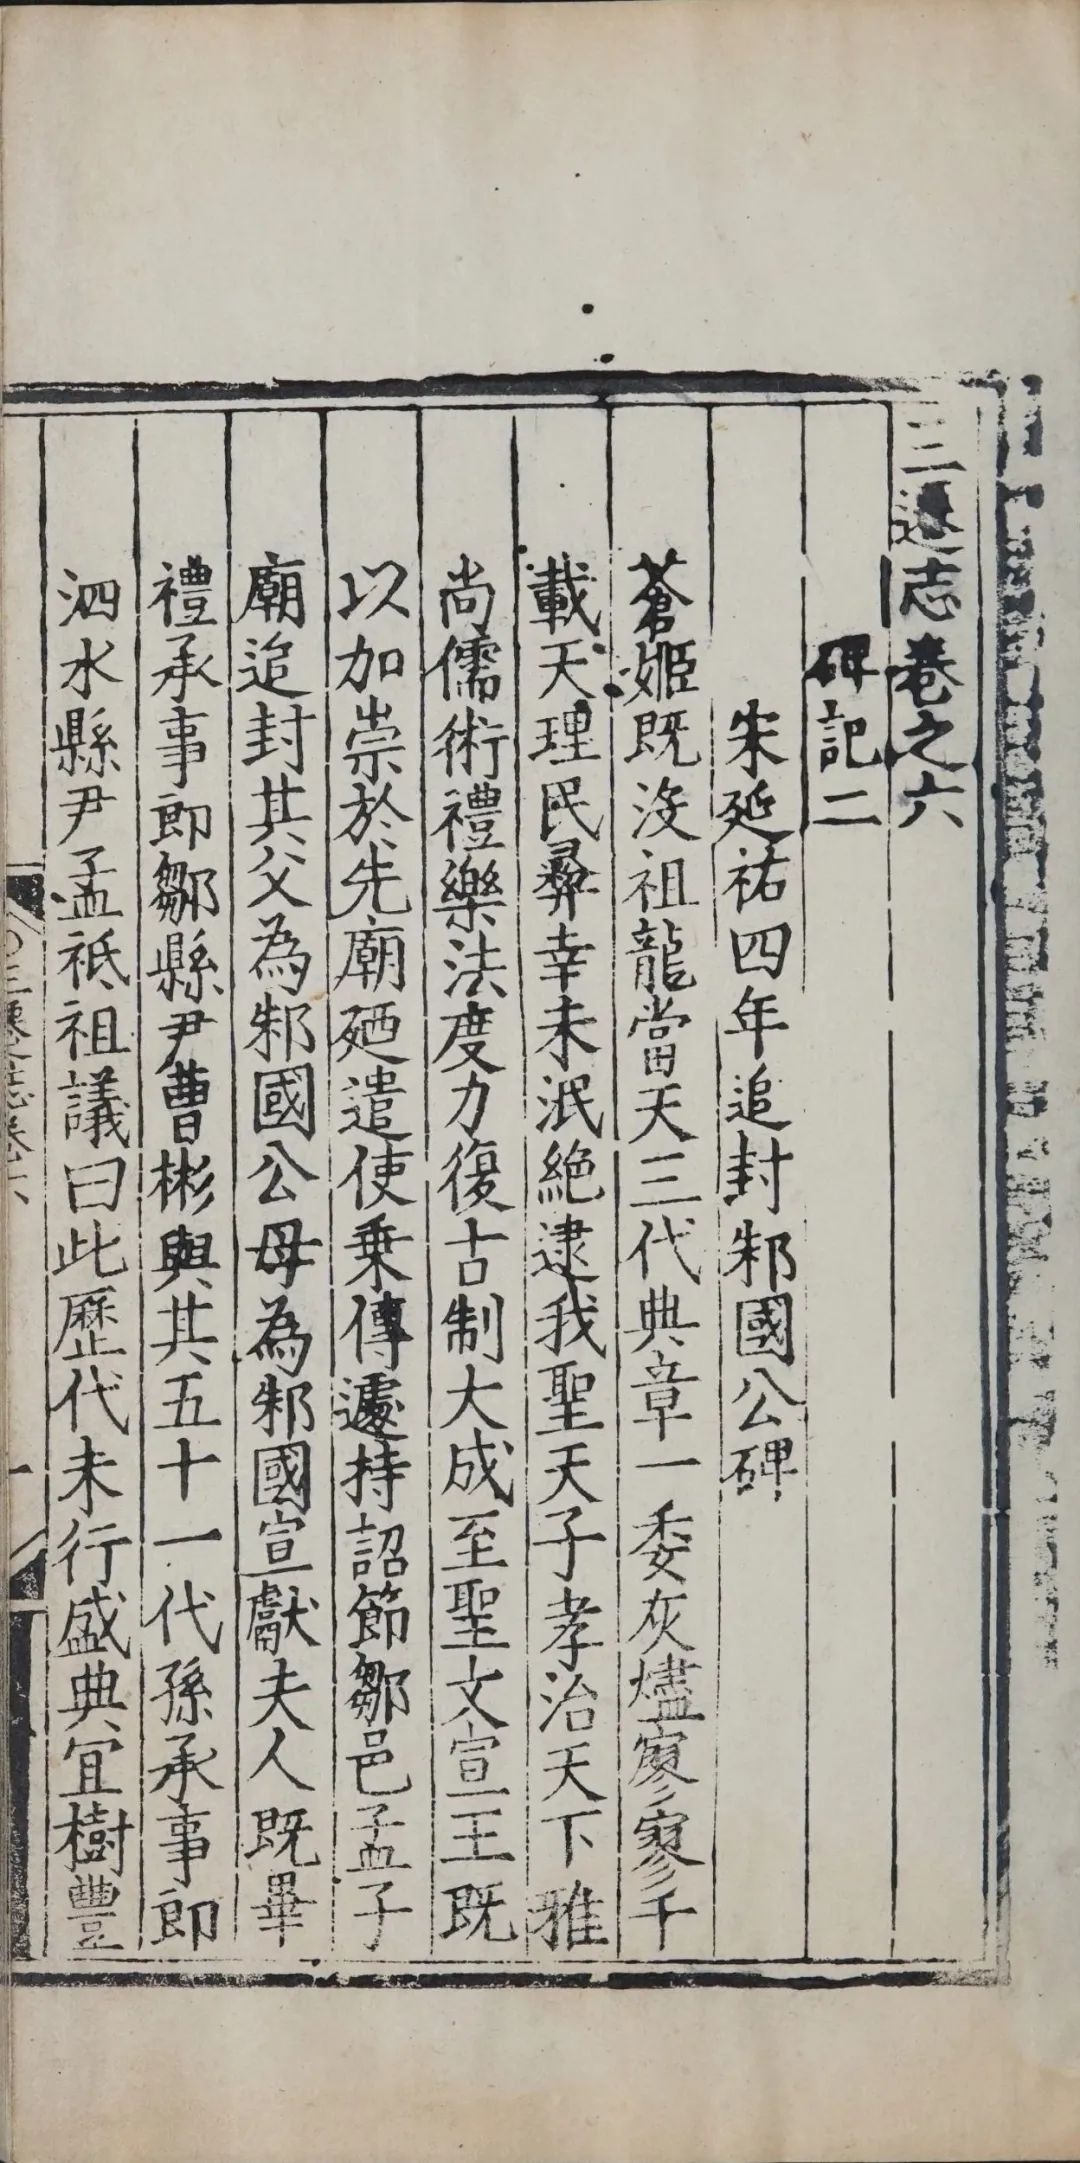 三遷志卷之六
碑記二
宋延祐四年追封邾國公碑
蒼姬既沒祖龍當天三代典章一委灰燼寥寥千
載天理民彝幸未泯絕逮我聖天子孝治天下雅
尚儒術禮樂法度力復古制大成至聖文宣王既
以加崇於先廟廼遣使乗傳遽持詔節鄒邑孟子
廟追封其父為邾國公母為邾國宣獻夫人既畢
禮承事郎鄒縣尹曹彬與其五十一代孫承事郎
泗水縣尹孟祗祖議曰此歷代未行盛典宜樹豐
三遷志卷六
一